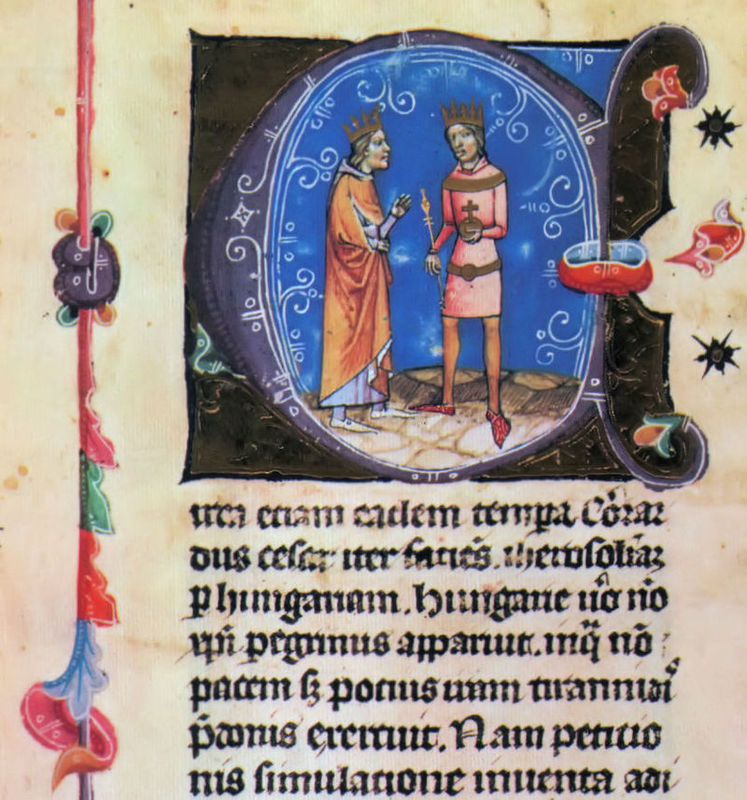 Circa eciam eadem tempa Cõrar
dus cesar iter faciẽs iherosolimaz
p hungariam. hungarie ũo nõ
xpi pegrinus apparuit. in q̃ nõ
pacem sz pocius iram tirannidi
p̃donis exercuit. Nam peticio
nis simulatione inuenta adi